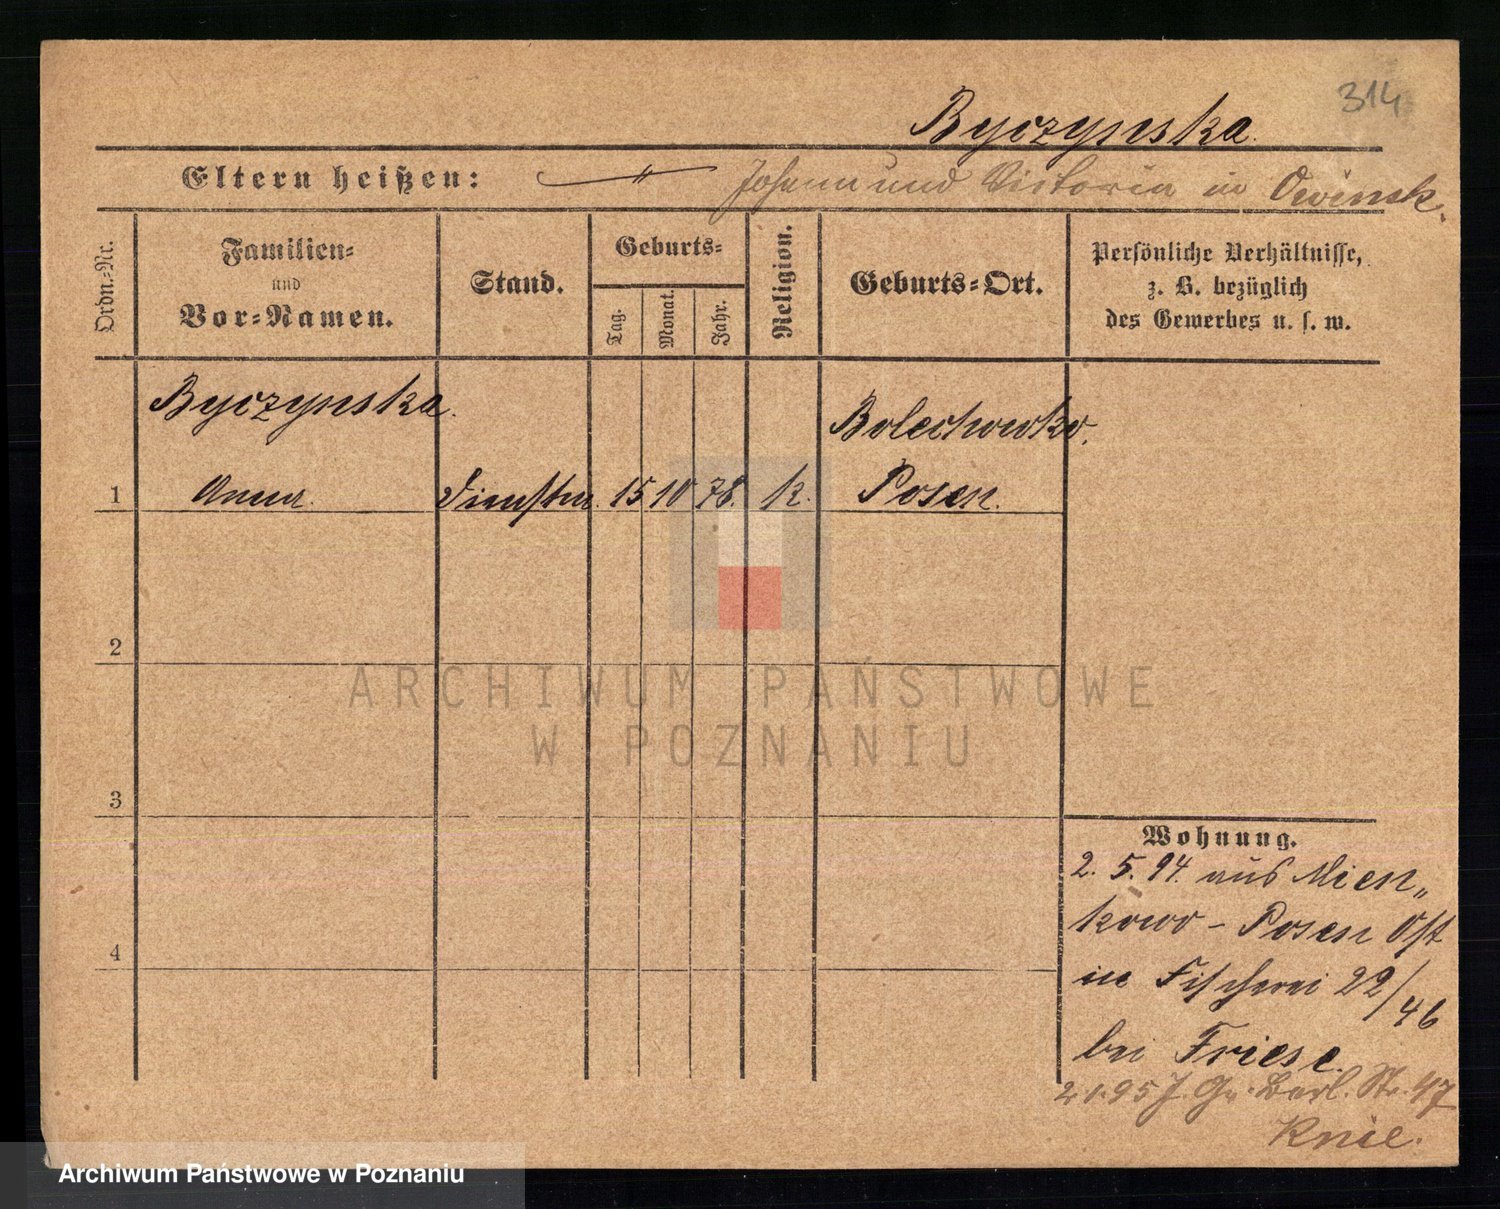 314
Byczynska.
Eltern heißen: Johann und Victoria in Owinsk.
Ordn.=Nr.
Familien=
und
Vor=Namen.
Stand.
Geburts=
Tag.
Monat.
Jahr.
Religion.
Geburts=Ort.
Persönliche Verhältnisse,
z. B. bezüglich
des Gewerbes u. s. w.
Byczynska.
Bolechowko.
1 Anna. Dienstm. 15 10 78. k. Posen.
2
3
4
Wohnung.
2. 5. 94. aus Mien„
kowo - Posen Ost
in Fischerei 22/46
bei Friese.
Berl. Str. 47
Knie.
ARCHIWUM PAŃSTWOWE
W POZNANIU
Archiwum Państwowe w Poznaniu